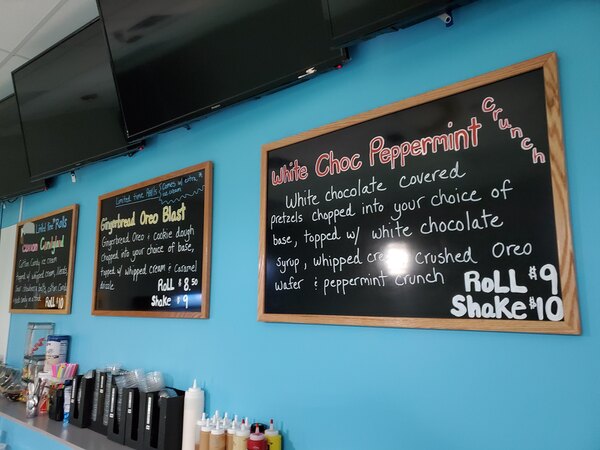 Limited Time Rolls
Cotton Candyland
Cotton Candy ice cream
ROLL $10
Limited Time Rolls
Comes w/ extra
ice cream
Gingerbread Oreo Blast
Gingerbread Oreo & Cookie dough
Chopped into your choice of base,
topped w/ whipped cream & Caramel
drizzle
ROLL $8.50
Shake $9
White Choc Peppermint Crunch
White chocolate covered
Pretzels chopped into your choice of
base, topped w/ white chocolate
syrup, whipped cream crushed Oreo
wafer & peppermint crunch
ROLL $9
Shake $10